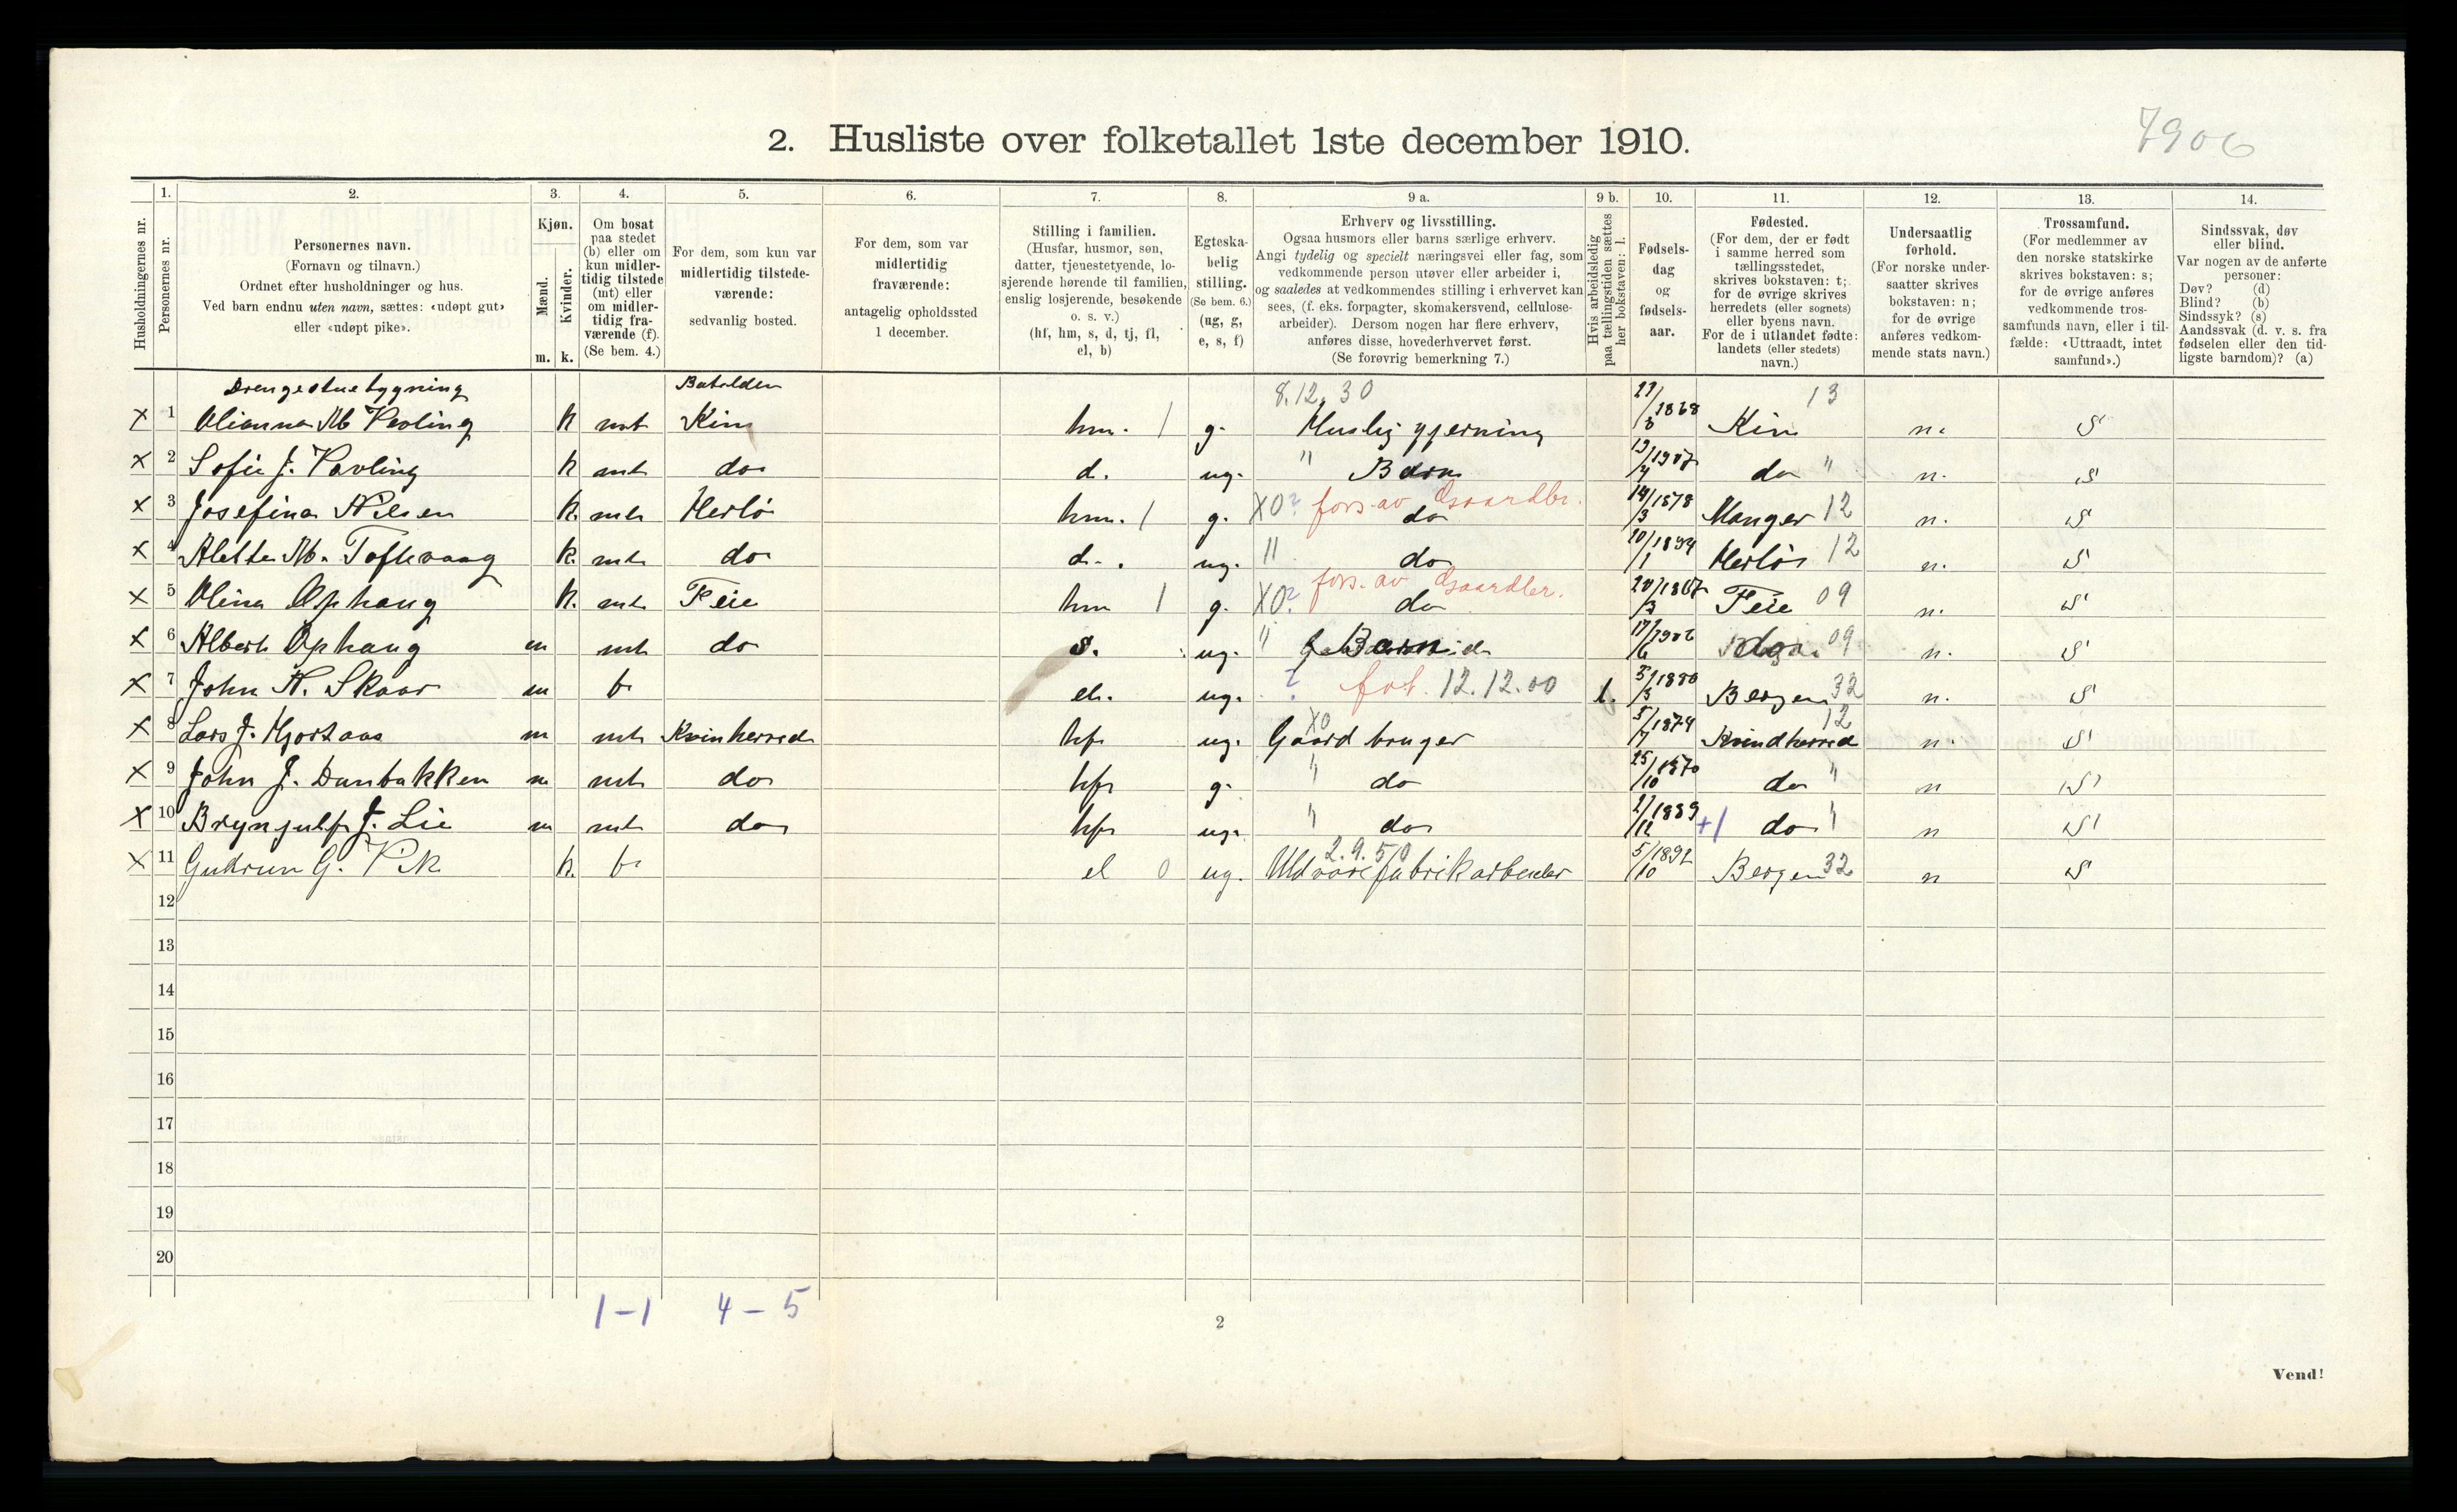 7906
2. Husliste over folketallet 1ste december 1910.
Husholdningernes nr.
1. Personernes nr.
2. Personernes navn.
(Fornavn og tilnavn.)
Ordnet efter husholdninger og hus.
Ved barn endnu uten navn, sættes: «udøpt gut»
eller «udøpt pike».
3. Kjøn.
Mænd. Kvinder.
m. k.
4. Om bosat
paa stedet
(b) eller om
kun midler-
tidig tilstede
(mt) eller
om midler-
tidig fra-
værende (f).
(Se bem. 4.)
5. For dem, som kun var
midlertidig tilstede-
værende:
sedvanlig bosted.
6. For dem, som var
midlertidig
fraværende:
antagelig opholdssted
1 december.
7. Stilling i familien.
(Husfar, husmor, søn,
datter, tjenestetyende, lo-
sjerende hørende til familien,
enslig losjerende, besøkende
o. s. v.)
(hf, hm, s, d, tj, fl,
el, b)
8. Egteska-
belig
stilling.
(Se bem. 6.)
(ug, g,
e, s, f)
9 a. Erhverv og livsstilling.
Ogsaa husmors eller barns særlige erhverv.
Angi tydelig og specielt næringsvei eller fag, som
vedkommende person utøver eller arbeider i,
og saaledes at vedkommendes stilling i erhvervet kan
sees, (f. eks. forpagter, skomakersvend, cellulose-
arbeider). Dersom nogen har flere erhverv,
anføres disse, hovederhvervet først.
(Se forøvrig bemerkning 7.)
9 b. Hvis arbeidsledig
paa tællingstiden sættes
her bokstaven: l.
10. Fødsels-
dag
og
fødsels-
aar.
11. Fødested.
(For dem, der er født
i samme herred som
tællingsstedet,
skrives bokstaven: t;
for de øvrige skrives
herredets (eller sognets)
eller byens navn.
For de i utlandet fødte:
landets (eller stedets)
navn.)
12. Undersaatlig
forhold.
(For norske under-
saatter skrives
bokstaven: n;
for de øvrige
anføres vedkom-
mende stats navn.)
13. Trossamfund.
(For medlemmer av
den norske statskirke
skrives bokstaven: s;
for de øvrige anføres
vedkommende tros-
samfunds navn, eller i til-
fælde: «Uttraadt, intet
samfund».)
14. Sindssvak, døv
eller blind.
Var nogen av de anførte
personer:
Døv? (d)
Blind? (b)
Sindssyk? (s)
Aandssvak (d. v. s. fra
fødselen eller den tid-
ligste barndom)? (a)
Drengestuebygning Batalden 8.12.30 13
x 1 Olianna M Vevling k mt Kin hm. 1 g. Huslig gjerning 1868 Kin n. s
x 2 Sofie J. Vevling k mt do d. ug. " Barn 13/4 1907 do " n. s
x 3 Josefina Nilsen k. mt Herlö hm. 1 g. XO? fors. av Gaardbr. do 14/3 1878 Manger 12 n. s
x 4 Alette M. Toftevaag k. mt do d. ug. " do 20/1 1894 Herlö 12 n. s
x 5 Olina Ophaug k. mt Feie hm 1 g. XO? fors. av Gaardbr. do 20/3 1867 Feie 09 n. s
x 6 Albert Ophaug m mt do s. ug. " Barn 17/6 1906 do 09 n. s
x 7 John N. Skaar m b el. ug. ? fot. 12.12.00 l. 5/5 1880 Bergen 32 n. s
x 8 Lars J. Hjortaas m mt Kvinherred hf ug. XO Gaardbruger 5/7 1874 Kvindherred 12 n. s
x 9 John J. Dunbakken m mt do hf g. " do 25/10 1870 do " n s
x 10 Brynjulf J. Lie m mt do hf ug. " do 2/12 1889 +1 do " n s
x 11 Gudrun G. Vik k. b el 0 ug. 2.9.50 Uldvarefabrikarbeider 5/10 1892 Bergen 32 n s
12
13
14
15
16
17
18
19
20
1-1 4-5
2
Vend!